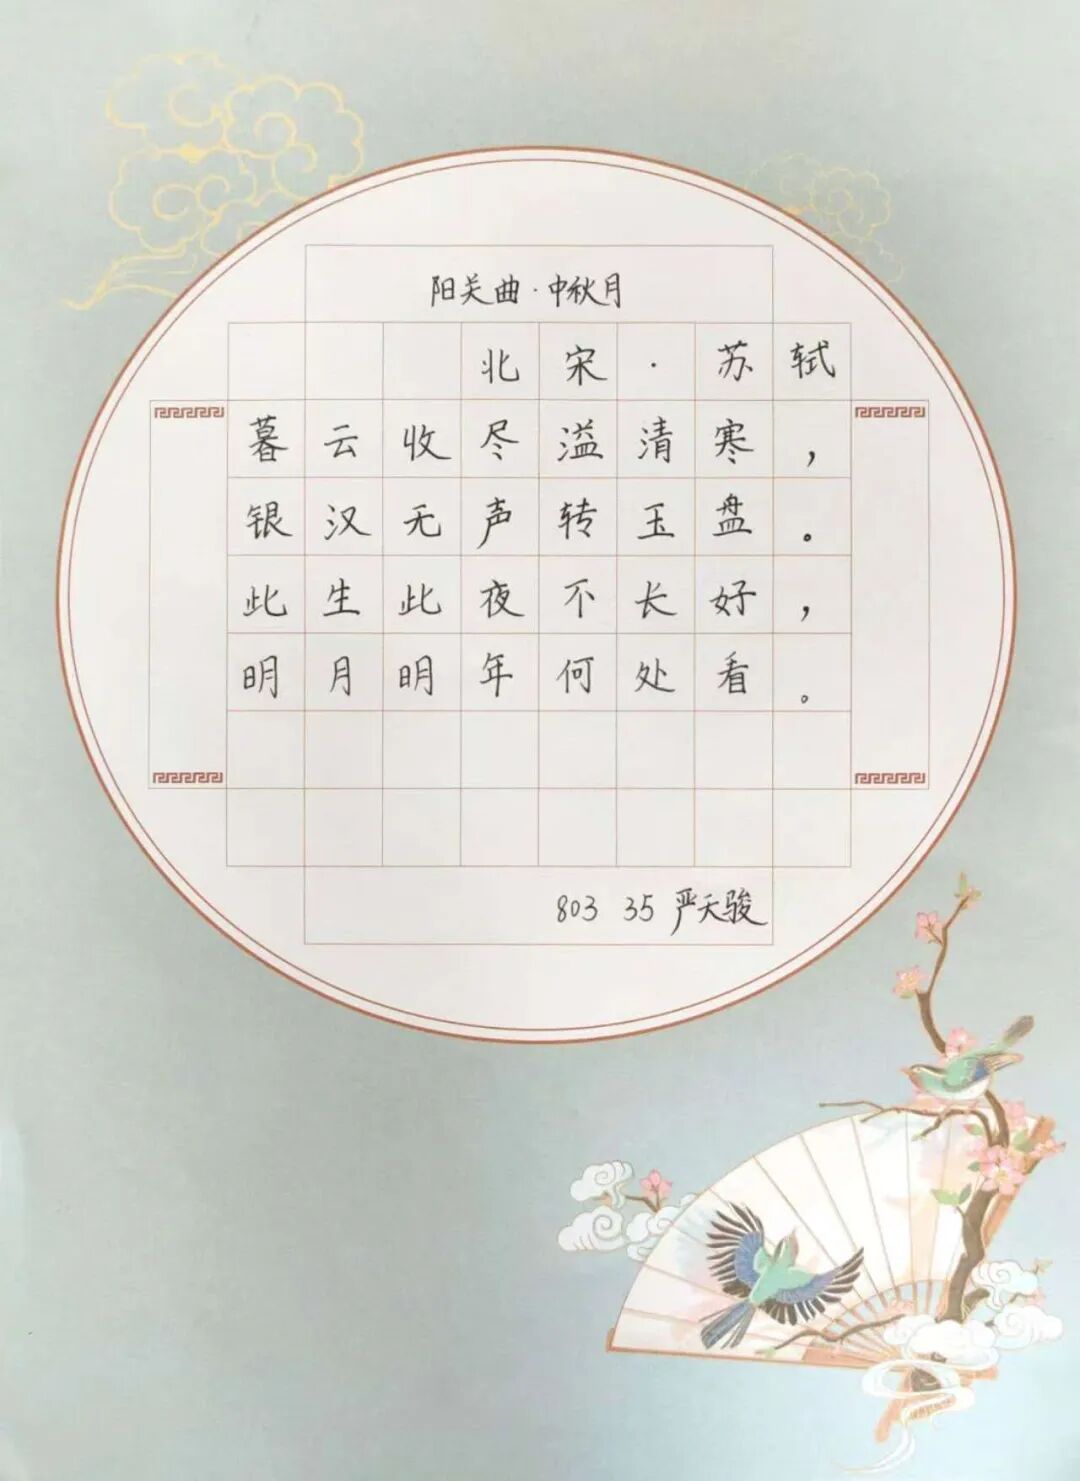 阳关曲·中秋月
北宋·苏轼
暮云收尽溢清寒，
银汉无声转玉盘。
此生此夜不长好，
明月明年何处看。
803 35 严天骏